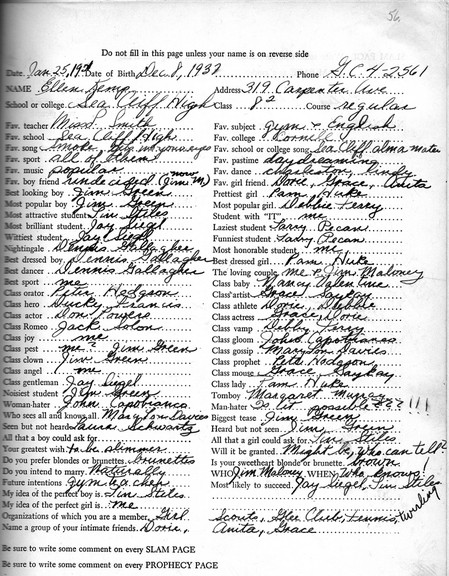 56
Do not fill in this page unless your name is on reverse side
Date. Jan 25, 19 Date of Birth Dec 8, 1937 Phone G.C. 4-2561
NAME Ellen Kemp Address 319 Carpenter Ave
School or college. Sea Cliff High Class 8² Course regular
Fav. teacher Miss Smith Fav. subject gym & English
Fav. school Sea Cliff High Fav. college Cornell
Fav. song Smoke gets in your eyes Fav. school or college song Sea Cliff alma mater
Fav. sport all of them Fav. pastime daydreaming
Fav. music popular Fav. dance charleston, lindy
Fav. boy friend undecided now (Jim M.) Fav. girl friend Dorie, Grace, Anita
Best looking boy Jim Green Prettiest girl Pam Nuke
Most popular boy Jim Green Most popular girl Debbie Terry
Most attractive student Tim Stiles Student with "IT" me
Most brilliant student Jay Siegel Laziest student Larry Pecan
Wittiest student Jay Siegel Funniest student Larry Pecan
Nightingale Dennis Gallagher Most honorable student me
Best dressed boy Dennis Gallagher Best dressed girl Pam Nuke
Best dancer Dennis Gallagher The loving couple me & Jim Maloney
Best sport me Class baby Nancy
Class orator Peter Hodgson Class artist Grace
Class hero Francis Class athlete Dorie, Debbie
Class actor Don Powers Class actress Grace, Dorie
Class Romeo Jack Class vamp Debby Terry
Class joy me Class gloom John Capobianco
Class pest me & Jim Green Class gossip Marylou Davies
Class clown Jim Green Class prophet Pete Hodgson
Class angel me Class mouse Grace
Class gentleman Jay Siegel Class lady Pam Nuke
Noisiest student Jim Green Tomboy Margaret
Woman-hater John Capobianco Man-hater Is it possible??!!!
Who sees all and knows all Marylou Davies Biggest tease Jim Green
Seen but not heard Laura Schwartz Heard but not seen Jim Green
All that a boy could ask for All that a girl could ask for Tim Stiles
Your greatest wish to be slimmer Will it be granted. Might be, who can tell?
Do you prefer blondes or brunettes brunettes Is your sweetheart blonde or brunette. brown!
Do you intend to marry Naturally WHO Jim Maloney WHEN Who knows
Future intentions gym teacher Most likely to succeed. Jay Siegel, Tim Stiles
My idea of the perfect boy is Tim Stiles
My idea of the perfect girl is me
Organizations of which you are a member. Girl Scouts, Glee Club, tennis, twirling
Name a group of your intimate friends. Dorie, Anita, Grace
Be sure to write some comment on every SLAM PAGE
Be sure to write some comment on every PROPHECY PAGE